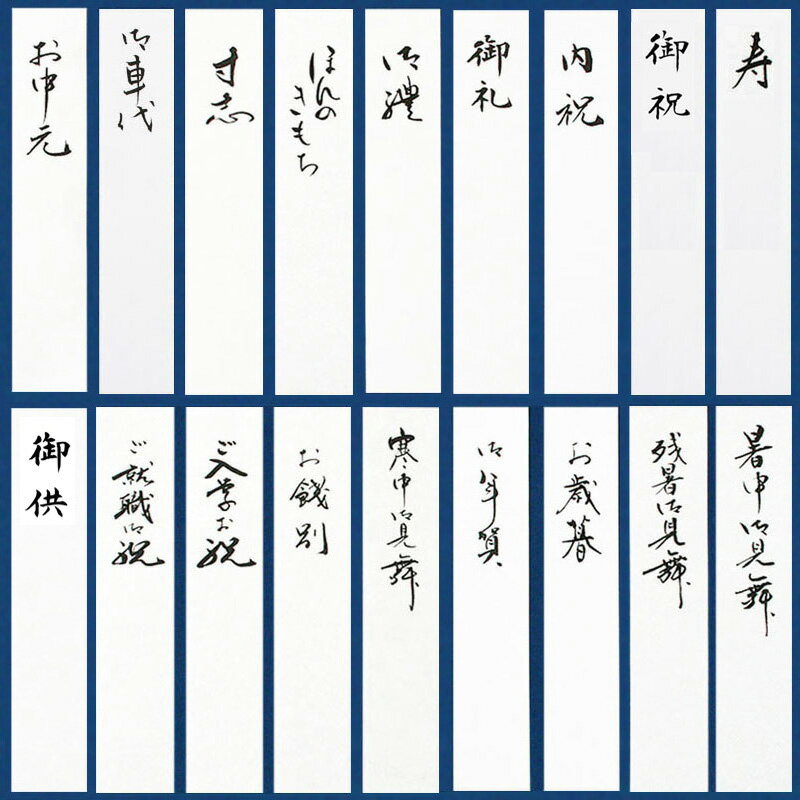 寿
御祝
内祝
御礼
御禮
ほんの
きもち
寸志
御車代
お中元
暑中御見舞
残暑御見舞
お歳暮
御年賀
寒中御見舞
お餞別
ご入学お祝
ご就職御祝
御供